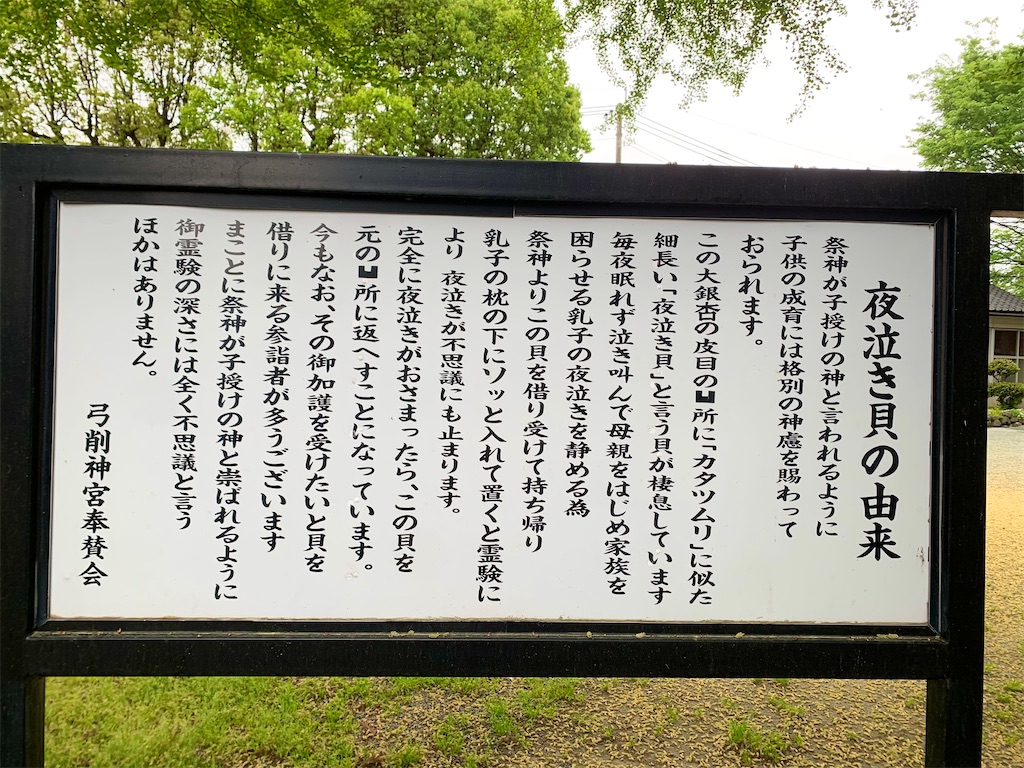 夜泣き貝の由来
祭神が子授けの神と言われるように
子供の成育には格別の神慮を賜わって
おられます。
この大銀杏の皮目の凹所に「カタツムリ」に似た
細長い「夜泣き貝」と言う貝が棲息しています
毎夜眠れず泣き叫んで母親をはじめ家族を
困らせる乳子の夜泣きを静める為
祭神よりこの貝を借り受けて持ち帰り
乳子の枕の下にソッと入れて置くと霊験に
より 夜泣きが不思議にも止まります。
完全に夜泣きがおさまったら、この貝を
元の凹所に返へすことになっています。
今もなお、その御加護を受けたいと貝を
借りに来る参詣者が多うございます
まことに祭神が子授けの神と崇ばれるように
御霊験の深さには全く不思議と言う
ほかはありません。
弓削神宮奉賛会